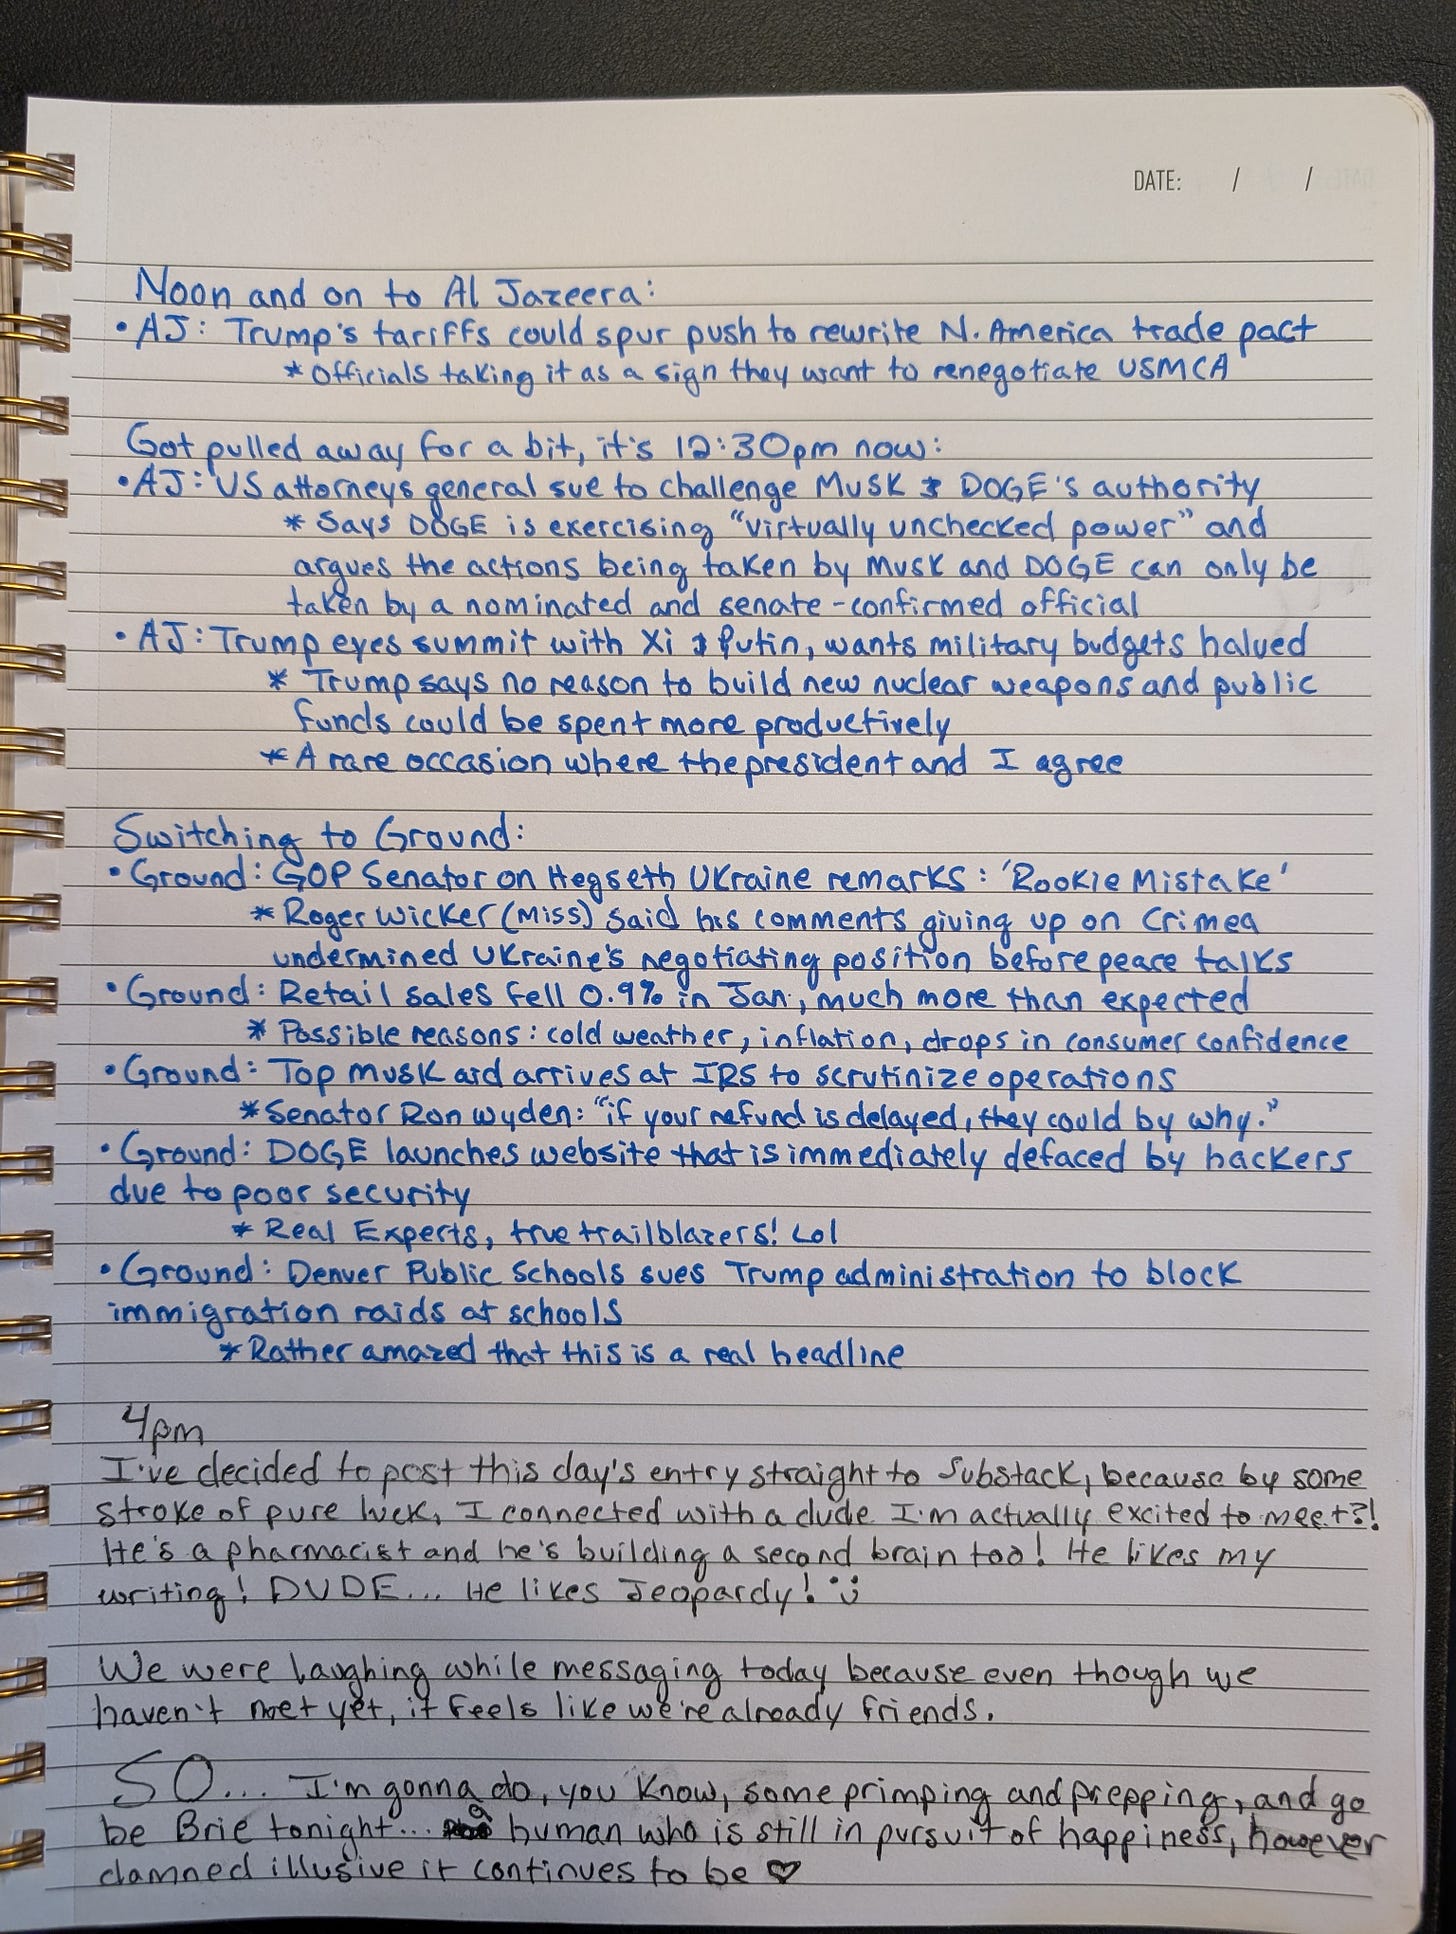 DATE: / /
Noon and on to Al Jazeera:
• AJ: Trump's tariffs could spur push to rewrite N. America trade pact
* Officials taking it as a sign they want to renegotiate USMCA
Got pulled away for a bit, it's 12:30pm now:
• AJ: US attorneys general sue to challenge Musk & DOGE's authority
* Says DOGE is exercising "virtually unchecked power" and
argues the actions being taken by Musk and DOGE can only be
taken by a nominated and senate-confirmed official
• AJ: Trump eyes summit with Xi & Putin, wants military budgets halved
* Trump says no reason to build new nuclear weapons and public
funds could be spent more productively
* A rare occasion where the president and I agree
Switching to Ground:
• Ground: GOP Senator on Hegseth Ukraine remarks: 'Rookie Mistake'
* Roger Wicker (Miss) said his comments giving up on Crimea
undermined Ukraine's negotiating position before peace talks
• Ground: Retail sales fell 0.9% in Jan., much more than expected
* Possible reasons: cold weather, inflation, drops in consumer confidence
• Ground: Top Musk aid arrives at IRS to scrutinize operations
* Senator Ron Wyden: "if your refund is delayed, they could by why."
• Ground: DOGE launches website that is immediately defaced by hackers
due to poor security
* Real Experts, true trailblazers! Lol
• Ground: Denver Public Schools sues Trump administration to block
immigration raids at schools
* Rather amazed that this is a real headline
4pm
I've decided to post this day's entry straight to Substack, because by some
stroke of pure luck, I connected with a dude I'm actually excited to meet?!
He's a pharmacist and he's building a second brain too! He likes my
writing! DUDE... He likes Jeopardy! :)
We were laughing while messaging today because even though we
haven't met yet, it feels like we're already friends.
SO... I'm gonna do, you know, some primping and prepping, and go
be Brie tonight... a human who is still in pursuit of happiness, however
damned illusive it continues to be ♡